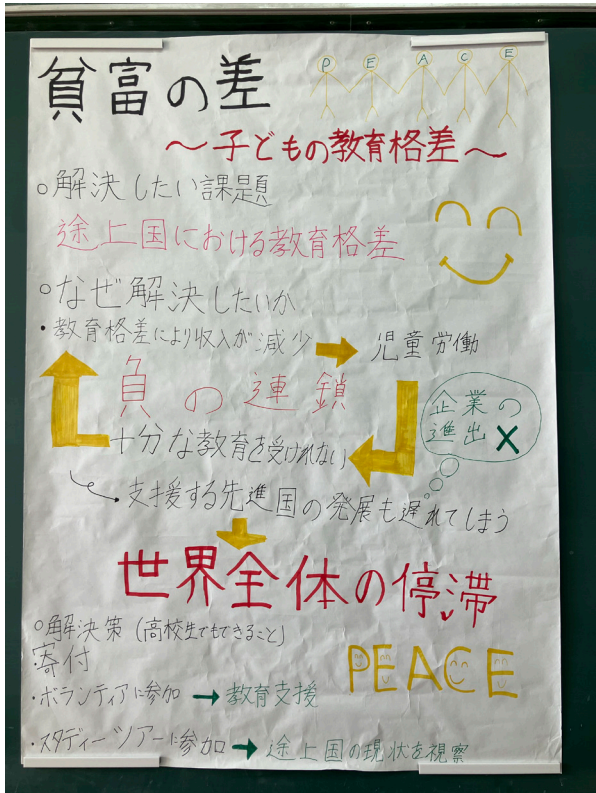 貧富の差
P E A C E
～子どもの教育格差～
○解決したい課題
途上国における教育格差
○なぜ解決したいか
・教育格差により収入が減少 → 児童労働
負の連鎖
企業の
進出 X
十分な教育を受けれない
・支援する先進国の発展も遅れてしまう
世界全体の停滞
○解決策 (高校生でもできること)
寄付
PEACE
・ボランティアに参加 → 教育支援
・スタディーツアーに参加 → 途上国の現状を視察